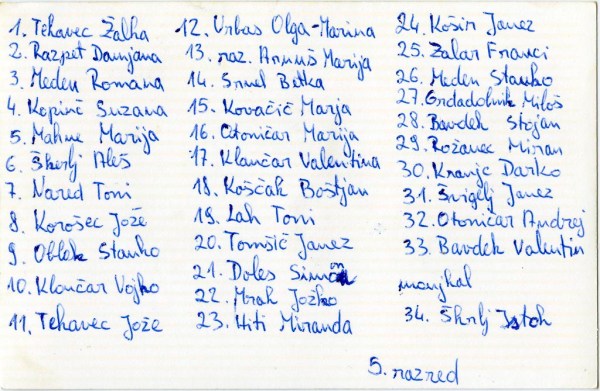 1. Tekavec Žalka
2. Razpet Damjana
3. Meden Romana
4. Kopinč Suzana
5. Mahne Marija
6. Škerlj Aleš
7. Nared Toni
8. Korošec Jože
9. Oblak Stanko
10. Klančar Vojko
11. Tekavec Jože
12. Urbas Olga-Marina
13. raz. Arnuš Marija
14. Srnel Betka
15. Kovačič Marja
16. Otoničar Marija
17. Klančar Valentina
18. Koščak Boštjan
19. Lah Toni
20. Tomšič Janez
21. Doles Simon
22. Mrak Jožko
23. Hiti Miranda
24. Košir Janez
25. Zalar Franci
26. Meden Stanko
27. Grdadolnik Miloš
28. Bavdek Stojan
29. Rožanec Miran
30. Kranjc Darko
31. Švigelj Janez
32. Otoničar Andrej
33. Bavdek Valentin
manjkal
34. Škrlj Istok
5. razred